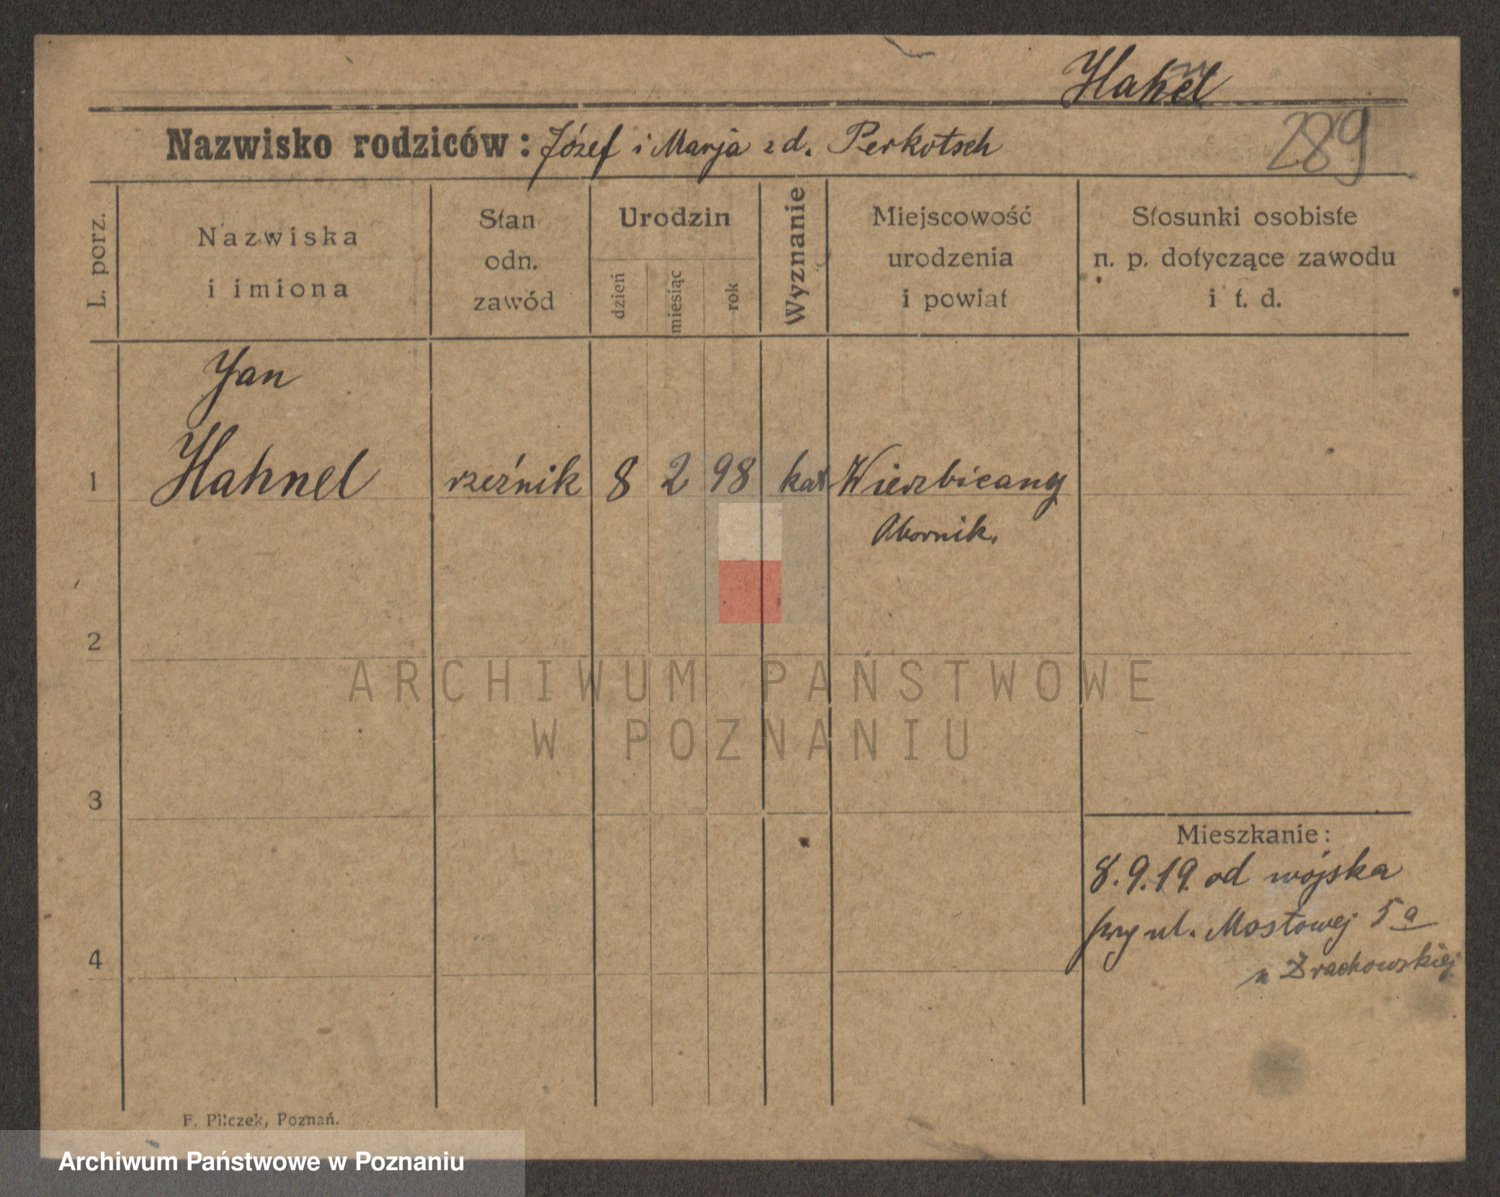 Hahel
Nazwisko rodziców: Józef i Marja z d. Perkotsch
289
L. porz.
Nazwiska
i imiona
Stan
odn.
zawód
Urodzin
dzień
miesiąc
rok
Wyznanie
Miejscowość
urodzenia
i powiat
Stosunki osobiste
n. p. dotyczące zawodu
i t. d.
Jan
1 Hahnel rzeźnik 8 2 98 kat Wierzbicany
2
ARCHIWUM PAŃSTWOWE
W POZNANIU
3
Mieszkanie:
8.9.19. od wojska
przy ul. Mostowej 5a
4
F. Pilczek, Poznań.
Archiwum Państwowe w Poznaniu